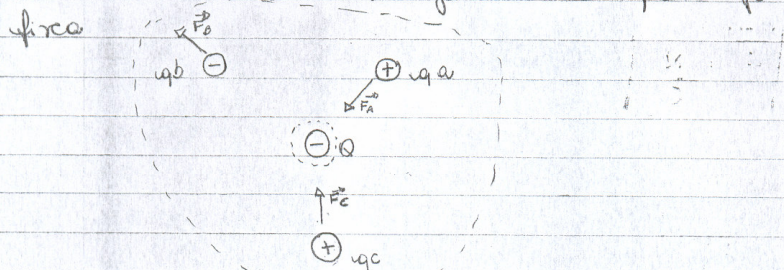 fixa
F_B
qb
−
+
qa
F_A
−
Q
F_C
+
qc